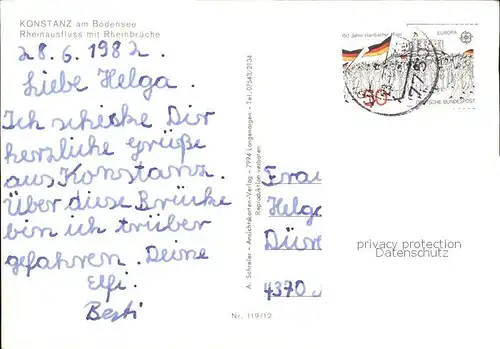 KONSTANZ am Bodensee
Rheinausfluss mit Rheinbrüche
28.6.1982.
Liebe Helga.
Ich schicke Dir
herzliche Grüße
aus Konstanz.
Über diese Brücke
bin ich trüber
gefahren. Deine
Elfi.
Berti
A. Schreiier - Ansichtskarten-Verlag - 7994 Langenargen - Tel. 07543/2134
Reproduktion verboten
Nr. 119/12
150 Jahre Hambacher Fest
EUROPA
50
DEUTSCHE BUNDESPOST
775
Frau
Helga
Dür
4370
privacy protection
Datenschutz